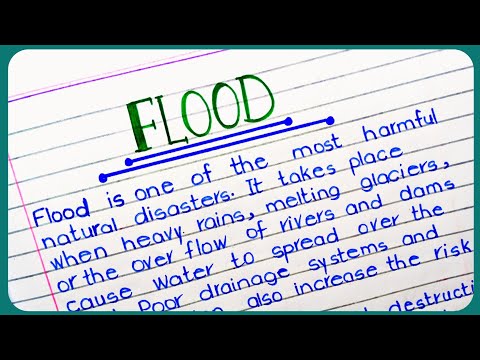 FLOOD
Flood is one of the most harmful
natural disasters. It takes place
when heavy rains, melting glaciers,
or the over flow of rivers and dams
cause water to spread over the
Poor drainage systems and
also increase the risk
destructi